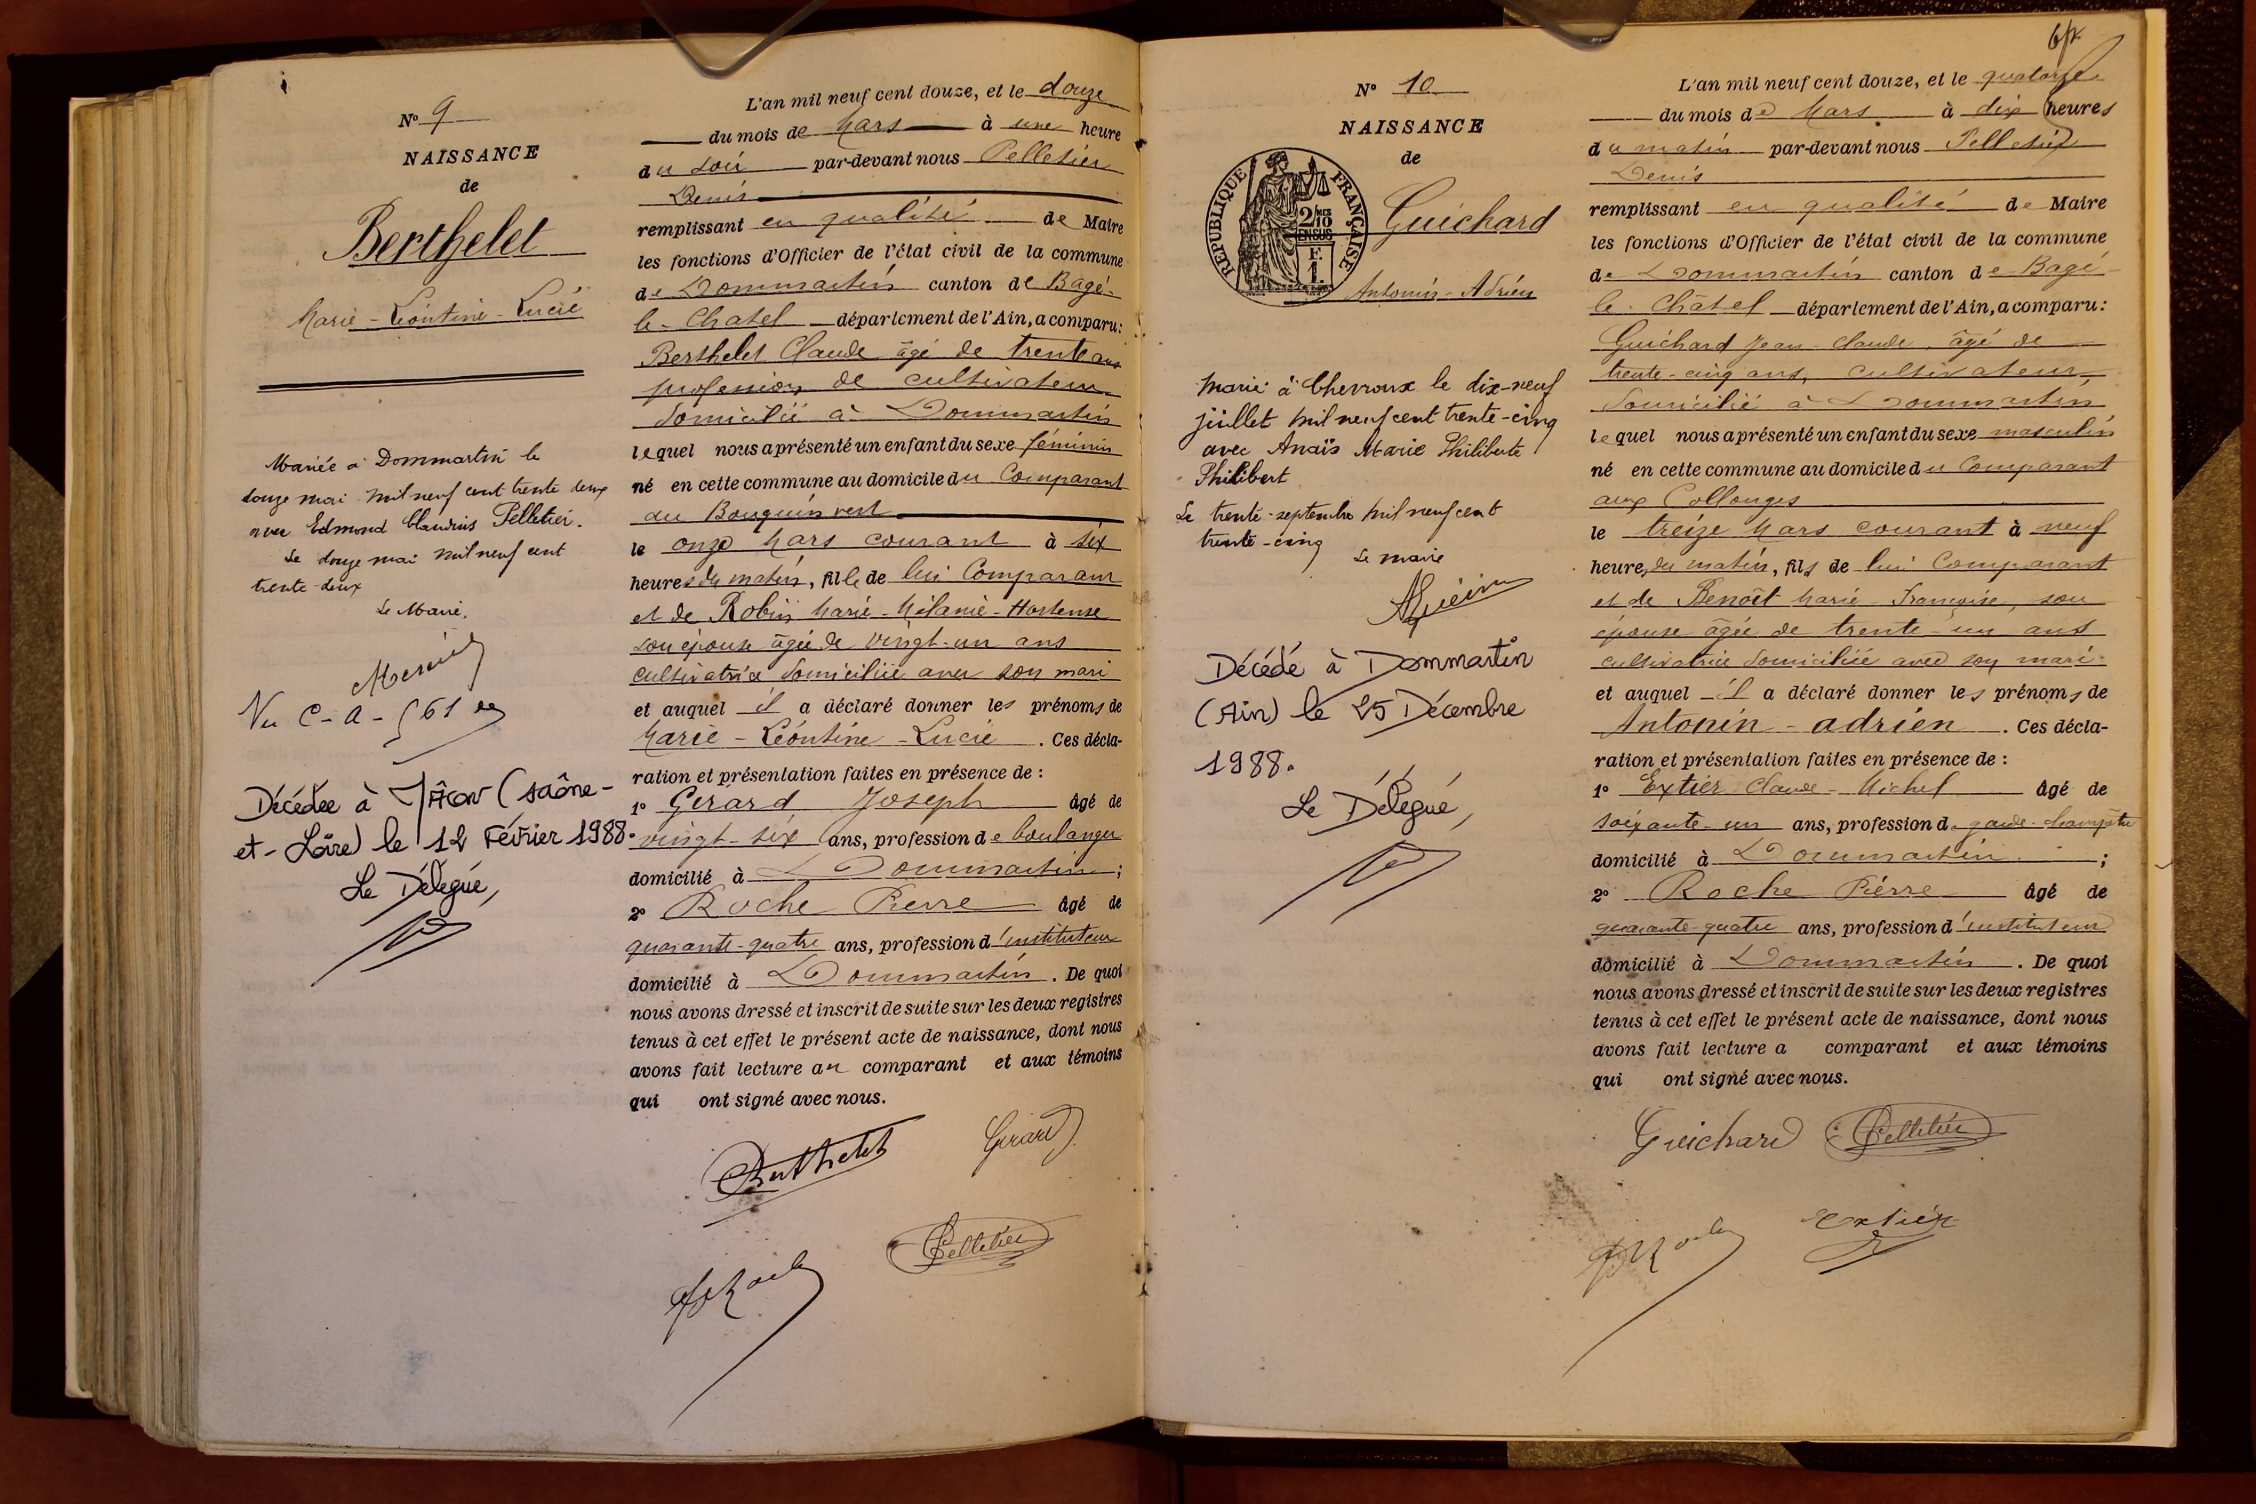 Nº 9
NAISSANCE
de
Berthelet
Marie - Léontine - Lucie
Mariée à Dommartin le
douze mai mil neuf cent trente deux
avec Edmond Claudius Pelletier.
Le douze mai mil neuf cent
trente-deux
Le Maire.
Décédée à Mâcon (Saône-
et-Loire) le 12 Février 1988.
Le Délégué,
L'an mil neuf cent douze, et le douze
du mois de Mars à une heure
du soir par-devant nous Pelletier
Denis
remplissant en qualité de Maire
les fonctions d'Officier de l'état civil de la commune
de Dommartin canton de Bagé-
le-Chatel département de l'Ain, a comparu:
Berthelet Claude âgé de trente ans
profession de cultivateur
domicilié à Dommartin
lequel nous a présenté un enfant du sexe féminin
né en cette commune au domicile du Comparant
au Bouquin vert
le onze Mars courant à six
heures du matin, fille de lui Comparant
et de Robin Marie - Mélanie - Hortense
son épouse âgée de vingt-un ans
cultivatrice domiciliée avec son mari
et auquel il a déclaré donner les prénoms de
Marie - Léontine - Lucie. Ces décla-
ration et présentation faites en présence de :
1º Gérard Joseph âgé de
vingt-six ans, profession de boulanger
domicilié à Dommartin;
2º Roche Pierre âgé de
quarante-quatre ans, profession d'instituteur
domicilié à Dommartin. De quoi
nous avons dressé et inscrit de suite sur les deux registres
tenus à cet effet le présent acte de naissance, dont nous
avons fait lecture au comparant et aux témoins
qui ont signé avec nous.
Berthelet Gérard
Pelletier
Nº 10
NAISSANCE
de
RÉPUBLIQUE FRANÇAISE
Guichard
Antonin - Adrien
Marié à Chevroux le dix-neuf
juillet mil neuf cent trente-cinq
avec Anaïs Marie Philiberte
Philibert
Le trente septembre mil neuf cent
trente-cinq
Le maire
Décédé à Dommartin
(Ain) le 25 Décembre
1988.
Le Délégué,
L'an mil neuf cent douze, et le quatorze
du mois de Mars à dix heures
du matin par-devant nous Pelletier
Denis
remplissant en qualité de Maire
les fonctions d'Officier de l'état civil de la commune
de Dommartin canton de Bagé-
le-Châtel département de l'Ain, a comparu:
Guichard Jean-Claude, âgé de
trente-cinq ans, cultivateur,
domicilié à Dommartin
lequel nous a présenté un enfant du sexe masculin
né en cette commune au domicile du Comparant
aux Collonges
le treize Mars courant à neuf
heures du matin, fils de lui Comparant
et de Benoît Marie Françoise, son
épouse âgée de trente-un ans
cultivatrice domiciliée avec son mari
et auquel il a déclaré donner les prénoms de
Antonin - adrien. Ces décla-
ration et présentation faites en présence de :
1º Extier Claude - Michel âgé de
soixante-un ans, profession de garde-champêtre
domicilié à Dommartin;
2º Roche Pierre âgé de
quarante-quatre ans, profession d'instituteur
domicilié à Dommartin. De quoi
nous avons dressé et inscrit de suite sur les deux registres
tenus à cet effet le présent acte de naissance, dont nous
avons fait lecture a comparant et aux témoins
qui ont signé avec nous.
Guichard Pelletier
Extier